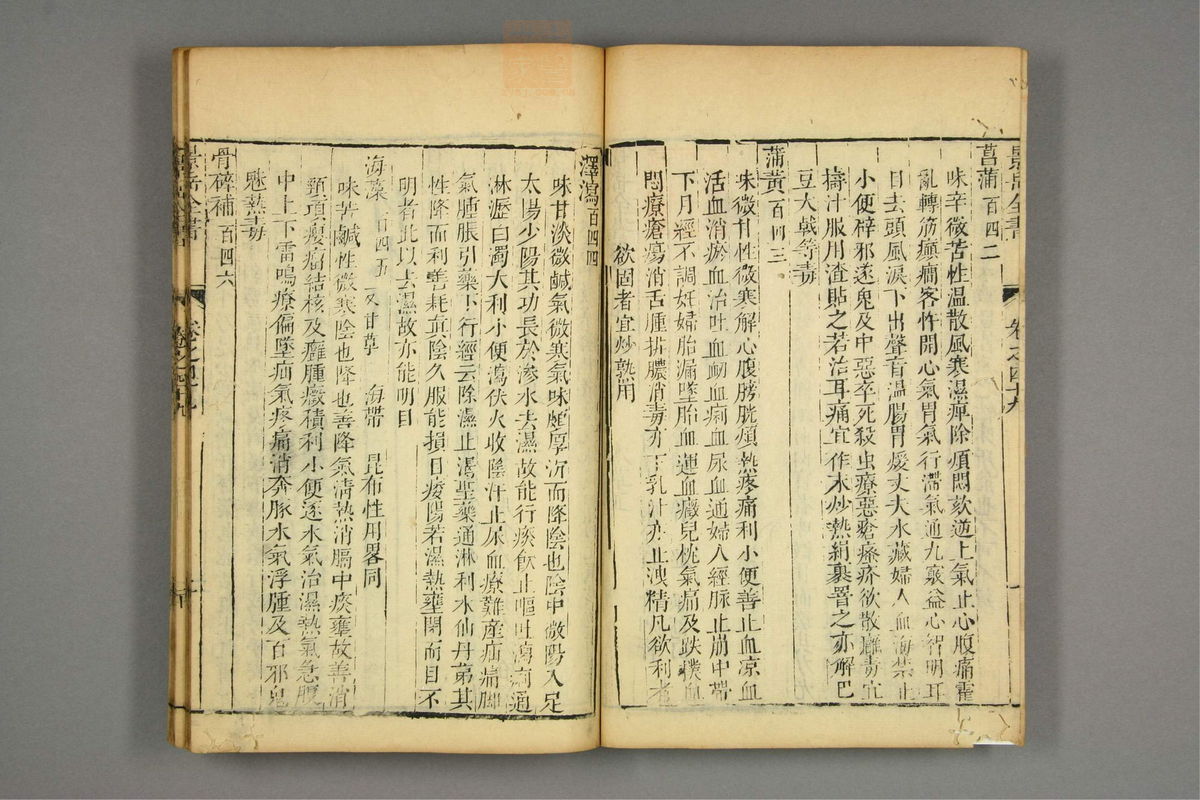 景岳全書 卷之四十九
菖蒲百四二
味辛微苦性温散風寒濕痺除煩悶欬逆上氣止心腹痛霍
亂轉筋癲癇客忤開心氣胃氣行滯氣通九竅益心智明耳
目去頭風淚下出聲音温腸胃煖丈夫水藏婦人血海禁止
小便辟邪逐鬼及中惡卒死殺虫療惡瘡瘙疥欲散癰毒宜
擣汁服用渣貼之若治耳痛宜作末炒熱絹裹罯之亦解巴
豆大戟等毒
蒲黃百四三
味微甘性微寒解心腹膀胱煩熱疼痛利小便善止血凉血
活血消瘀血治吐血衂血痢血尿血通婦人經脉止崩中帶
下月經不調妊婦胎漏墜胎血運血癥兒枕氣痛及跌撲血
悶療瘡瘍消舌腫排膿消毒亦下乳汁亦止洩精凡欲利者
欲固者宜炒熟用
澤瀉百四四
味甘淡微鹹氣微寒氣味頗厚沉而降陰也陰中微陽入足
太陽少陽其功長於滲水去濕故能行痰飲止嘔吐瀉痢通
淋瀝白濁大利小便瀉伏火收陰汗止尿血療難産疝痛脚
氣腫脹引藥下行經云除濕止渴聖藥通淋利水仙丹第其
性降而利善耗真陰久服能損目痿陽若濕熱壅閉而目不
明者此以去濕故亦能明目
海藻百四五 又甘草 海帶 昆布性用畧同
味苦鹹性微寒陰也降也善降氣清熱消膈中痰壅故善消
頸項瘿瘤結核及癰腫癥積利小便逐水氣治濕熱氣急腹
中上下雷鳴療偏墜疝氣疼痛消奔豚水氣浮腫及百邪鬼
魅熱毒
骨碎補百四六
景岳全書